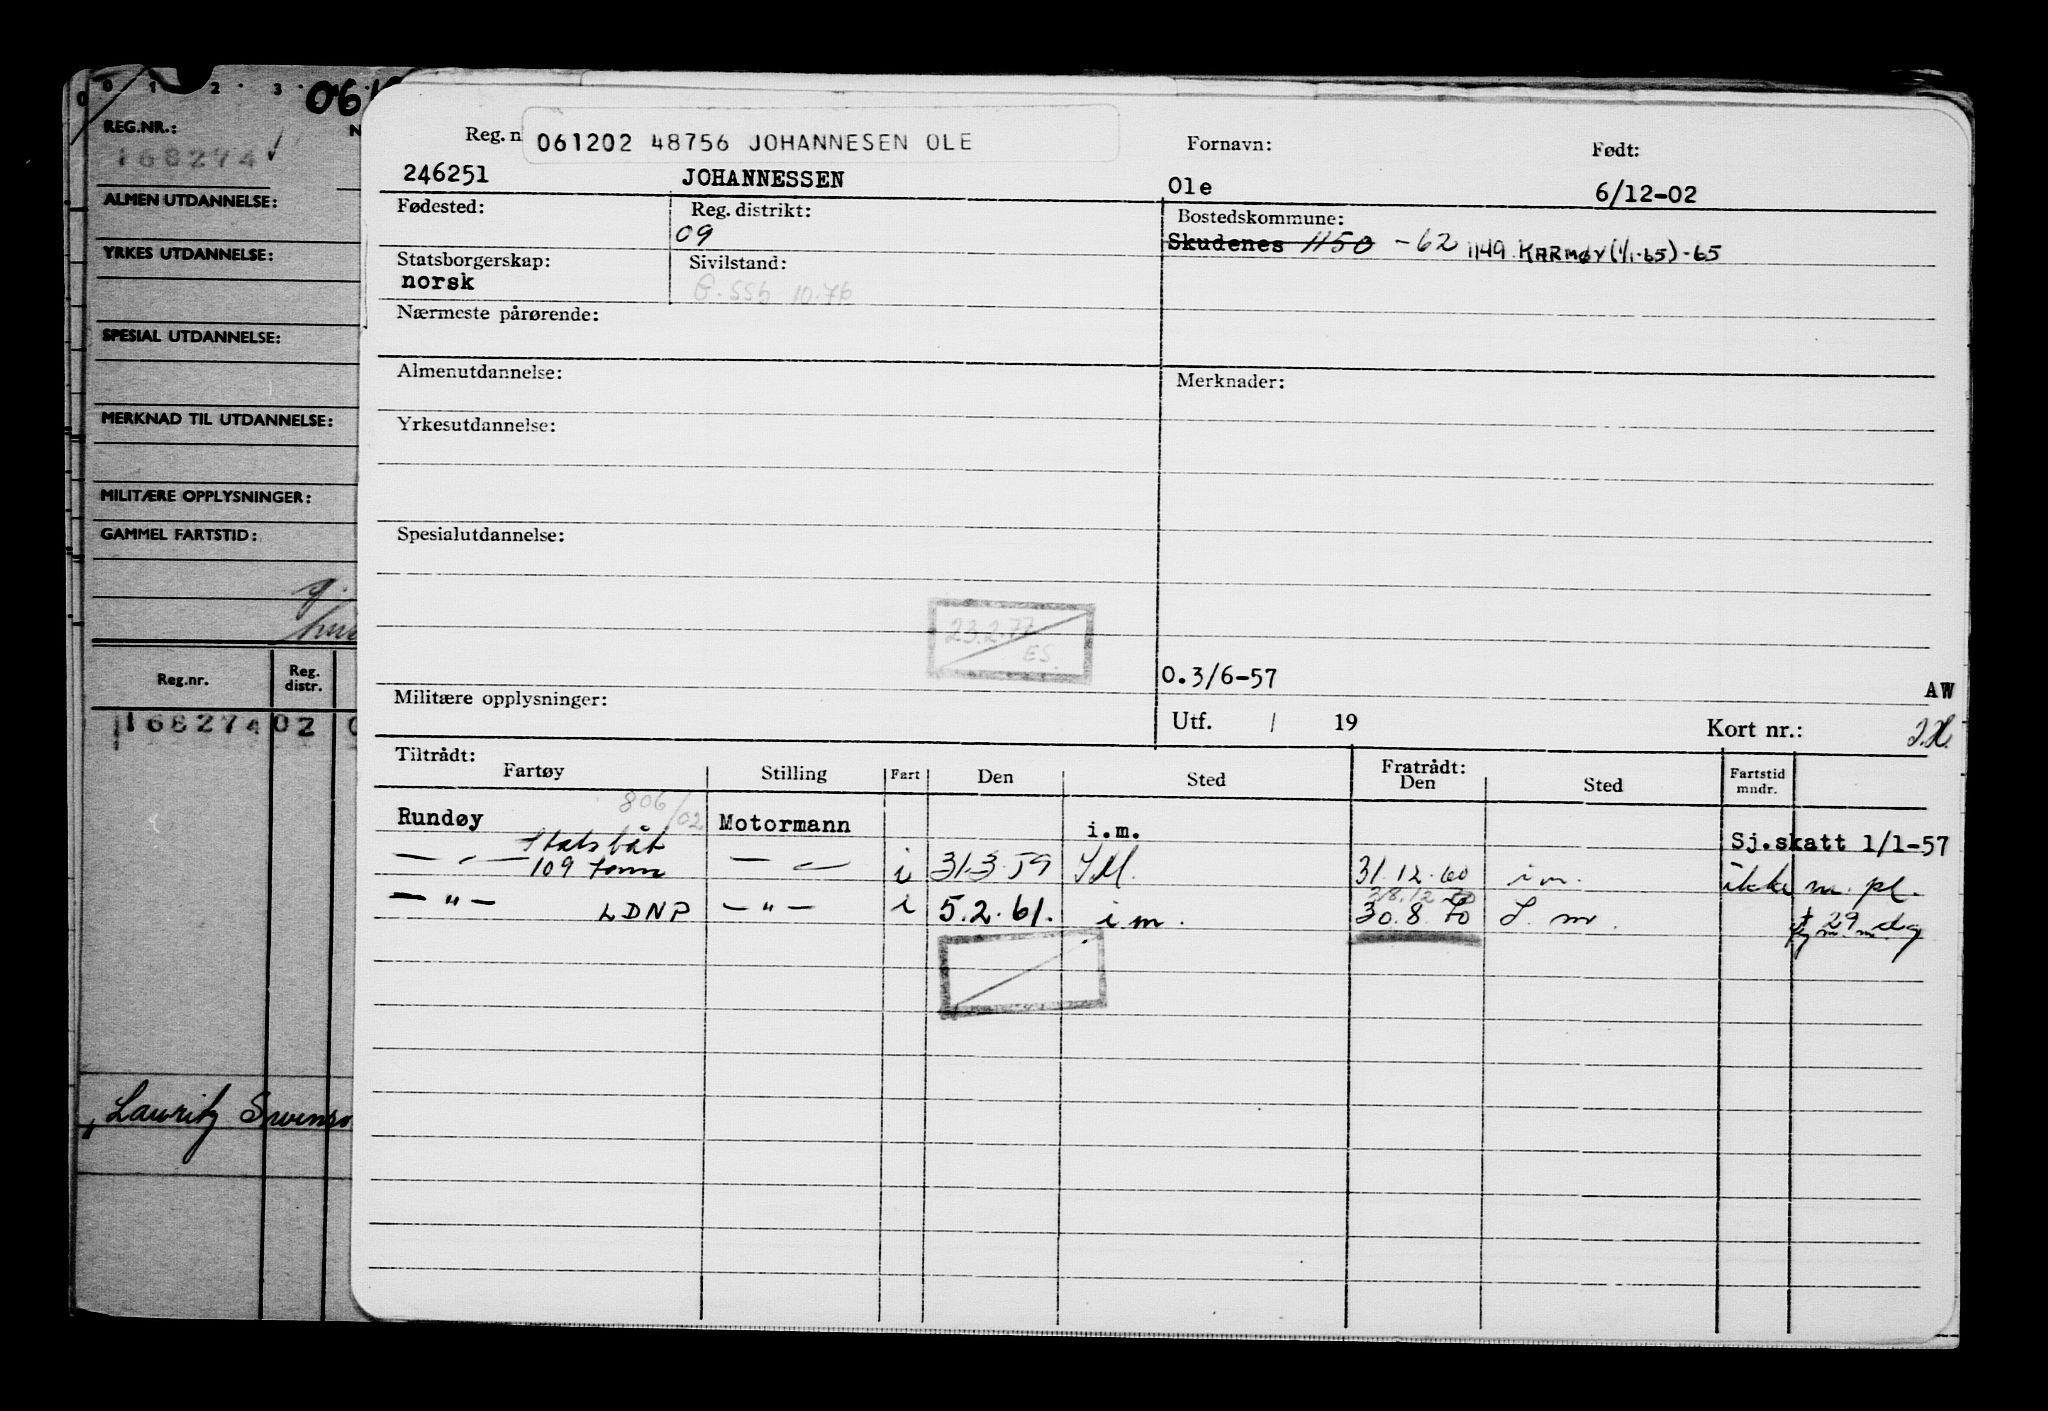 0 1 2 3
REG.NR.:
168274
ALMEN UTDANNELSE:
YRKES UTDANNELSE:
SPESIAL UTDANNELSE:
MERKNAD TIL UTDANNELSE:
MILITÆRE OPPLYSNINGER:
GAMMEL FARTSTID:
Reg.nr. Reg. distr.
168274 02
Lauritz
Reg. n
061202 48756 JOHANNESEN OLE
Fornavn: Født:
246251 JOHANNESSEN Ole 6/12-02
Fødested: Reg. distrikt: Bostedskommune:
09 Skudenes 1150 -62 1149 KARMØY (1/1-65) -65
Statsborgerskap: Sivilstand:
norsk G. SSB 10.76
Nærmeste pårørende:
Almenutdannelse: Merknader:
Yrkesutdannelse:
Spesialutdannelse:
23.2.77
ES.
0.3/6-57
AW
Militære opplysninger: Utf. / 19 Kort nr.:
Tiltrådt: Fratrådt:
Fartøy Stilling Fart Den Sted Den Sted Fartstid mndr.
806/02
Rundøy Motormann i.m. Sj.skatt 1/1-57
Statsbåt
— " — 109 tonn — " — i 31.3.59 I.M. 31.12.60 i m. ikke m. pl.
28.12.70
— " — LDNP — " — i 5.2.61. i m. 30.8.70 I. m. 29 dg